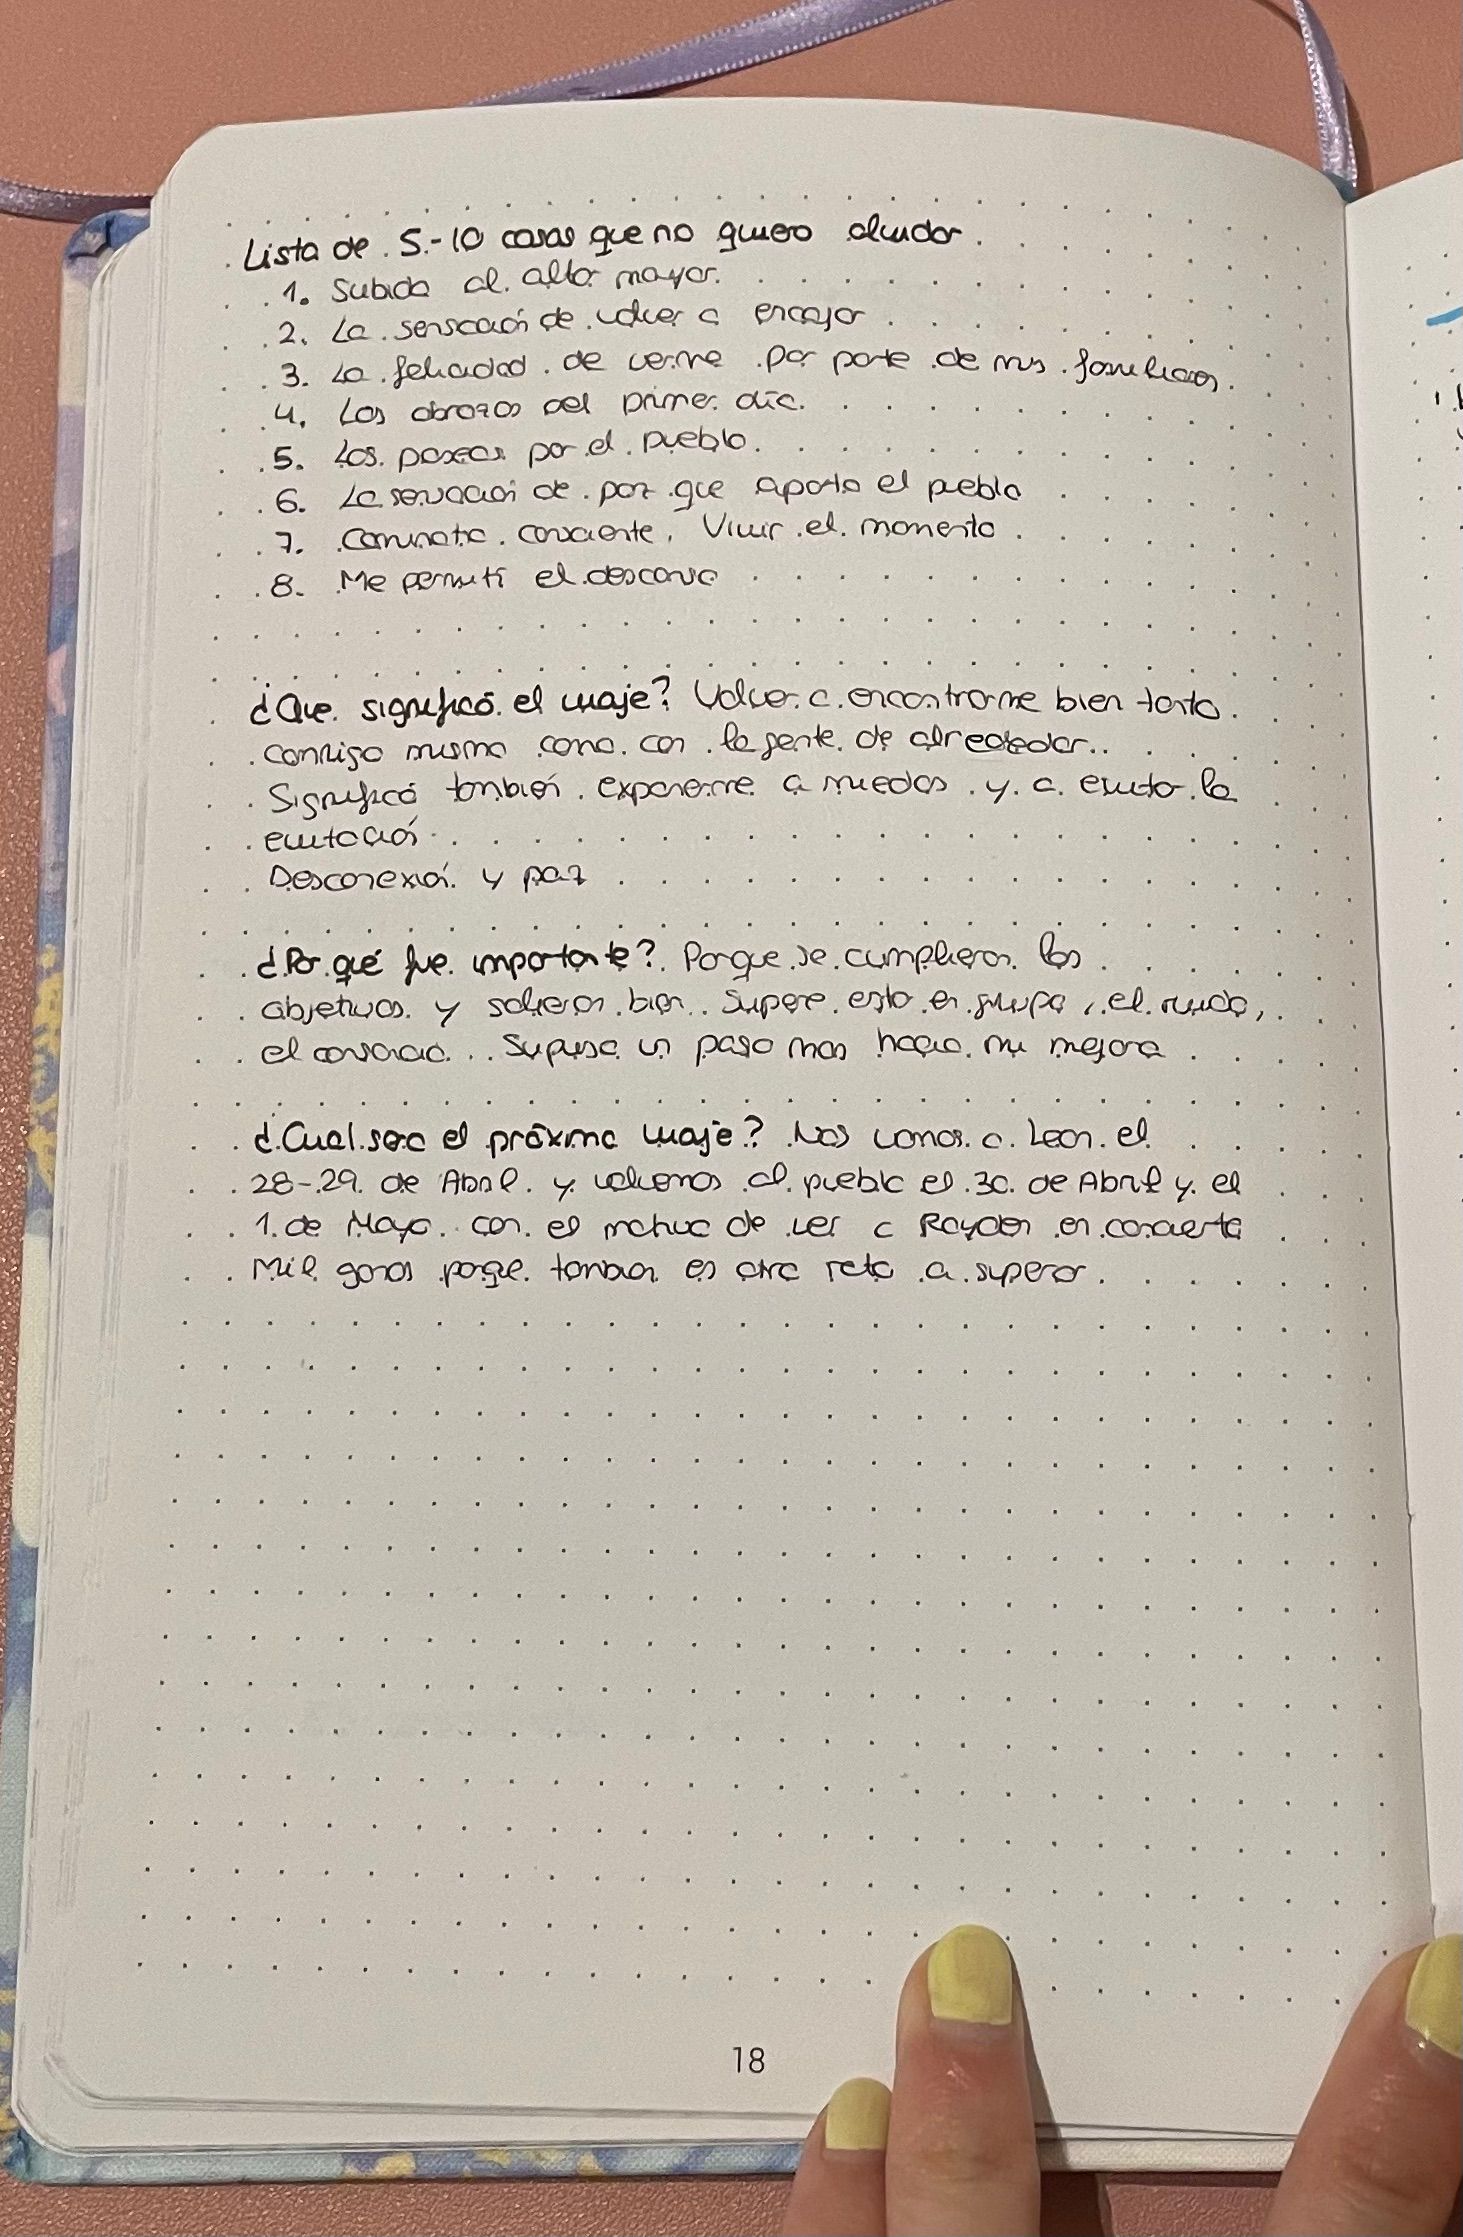 Lista de 5-10 cosas que no quiero olvidar.
1. Subida al alto mayor.
2. La sensación de volver a encajar
3. La felicidad de verme por parte de mis familiares.
4. Los abrazos del primer día.
5. Los paseos por el pueblo.
6. La sensación de paz que aporta el pueblo
7. Caminata consciente. Vivir el momento
8. Me permití el descanso
¿Que significó el viaje? Volver a encontrarme bien tanto
conmigo misma como con la gente de alrededor.
Significó también exponerme a miedos y a evitar la
evitación
Desconexión y paz
¿Por qué fue importante? Porque se cumplieron los
objetivos y salieron bien. Supere esto en grupo, el ruido,
el cansancio. Supuso un paso mas hacia mi mejora
¿Cual será el próximo viaje? Nos vamos a Leon el
28-29 de Abril y volvemos al pueblo el 30 de Abril y el
1 de Mayo con el motivo de ver a Rayden en concierto
Mil ganas porque tambien es otro reto a superar.
18